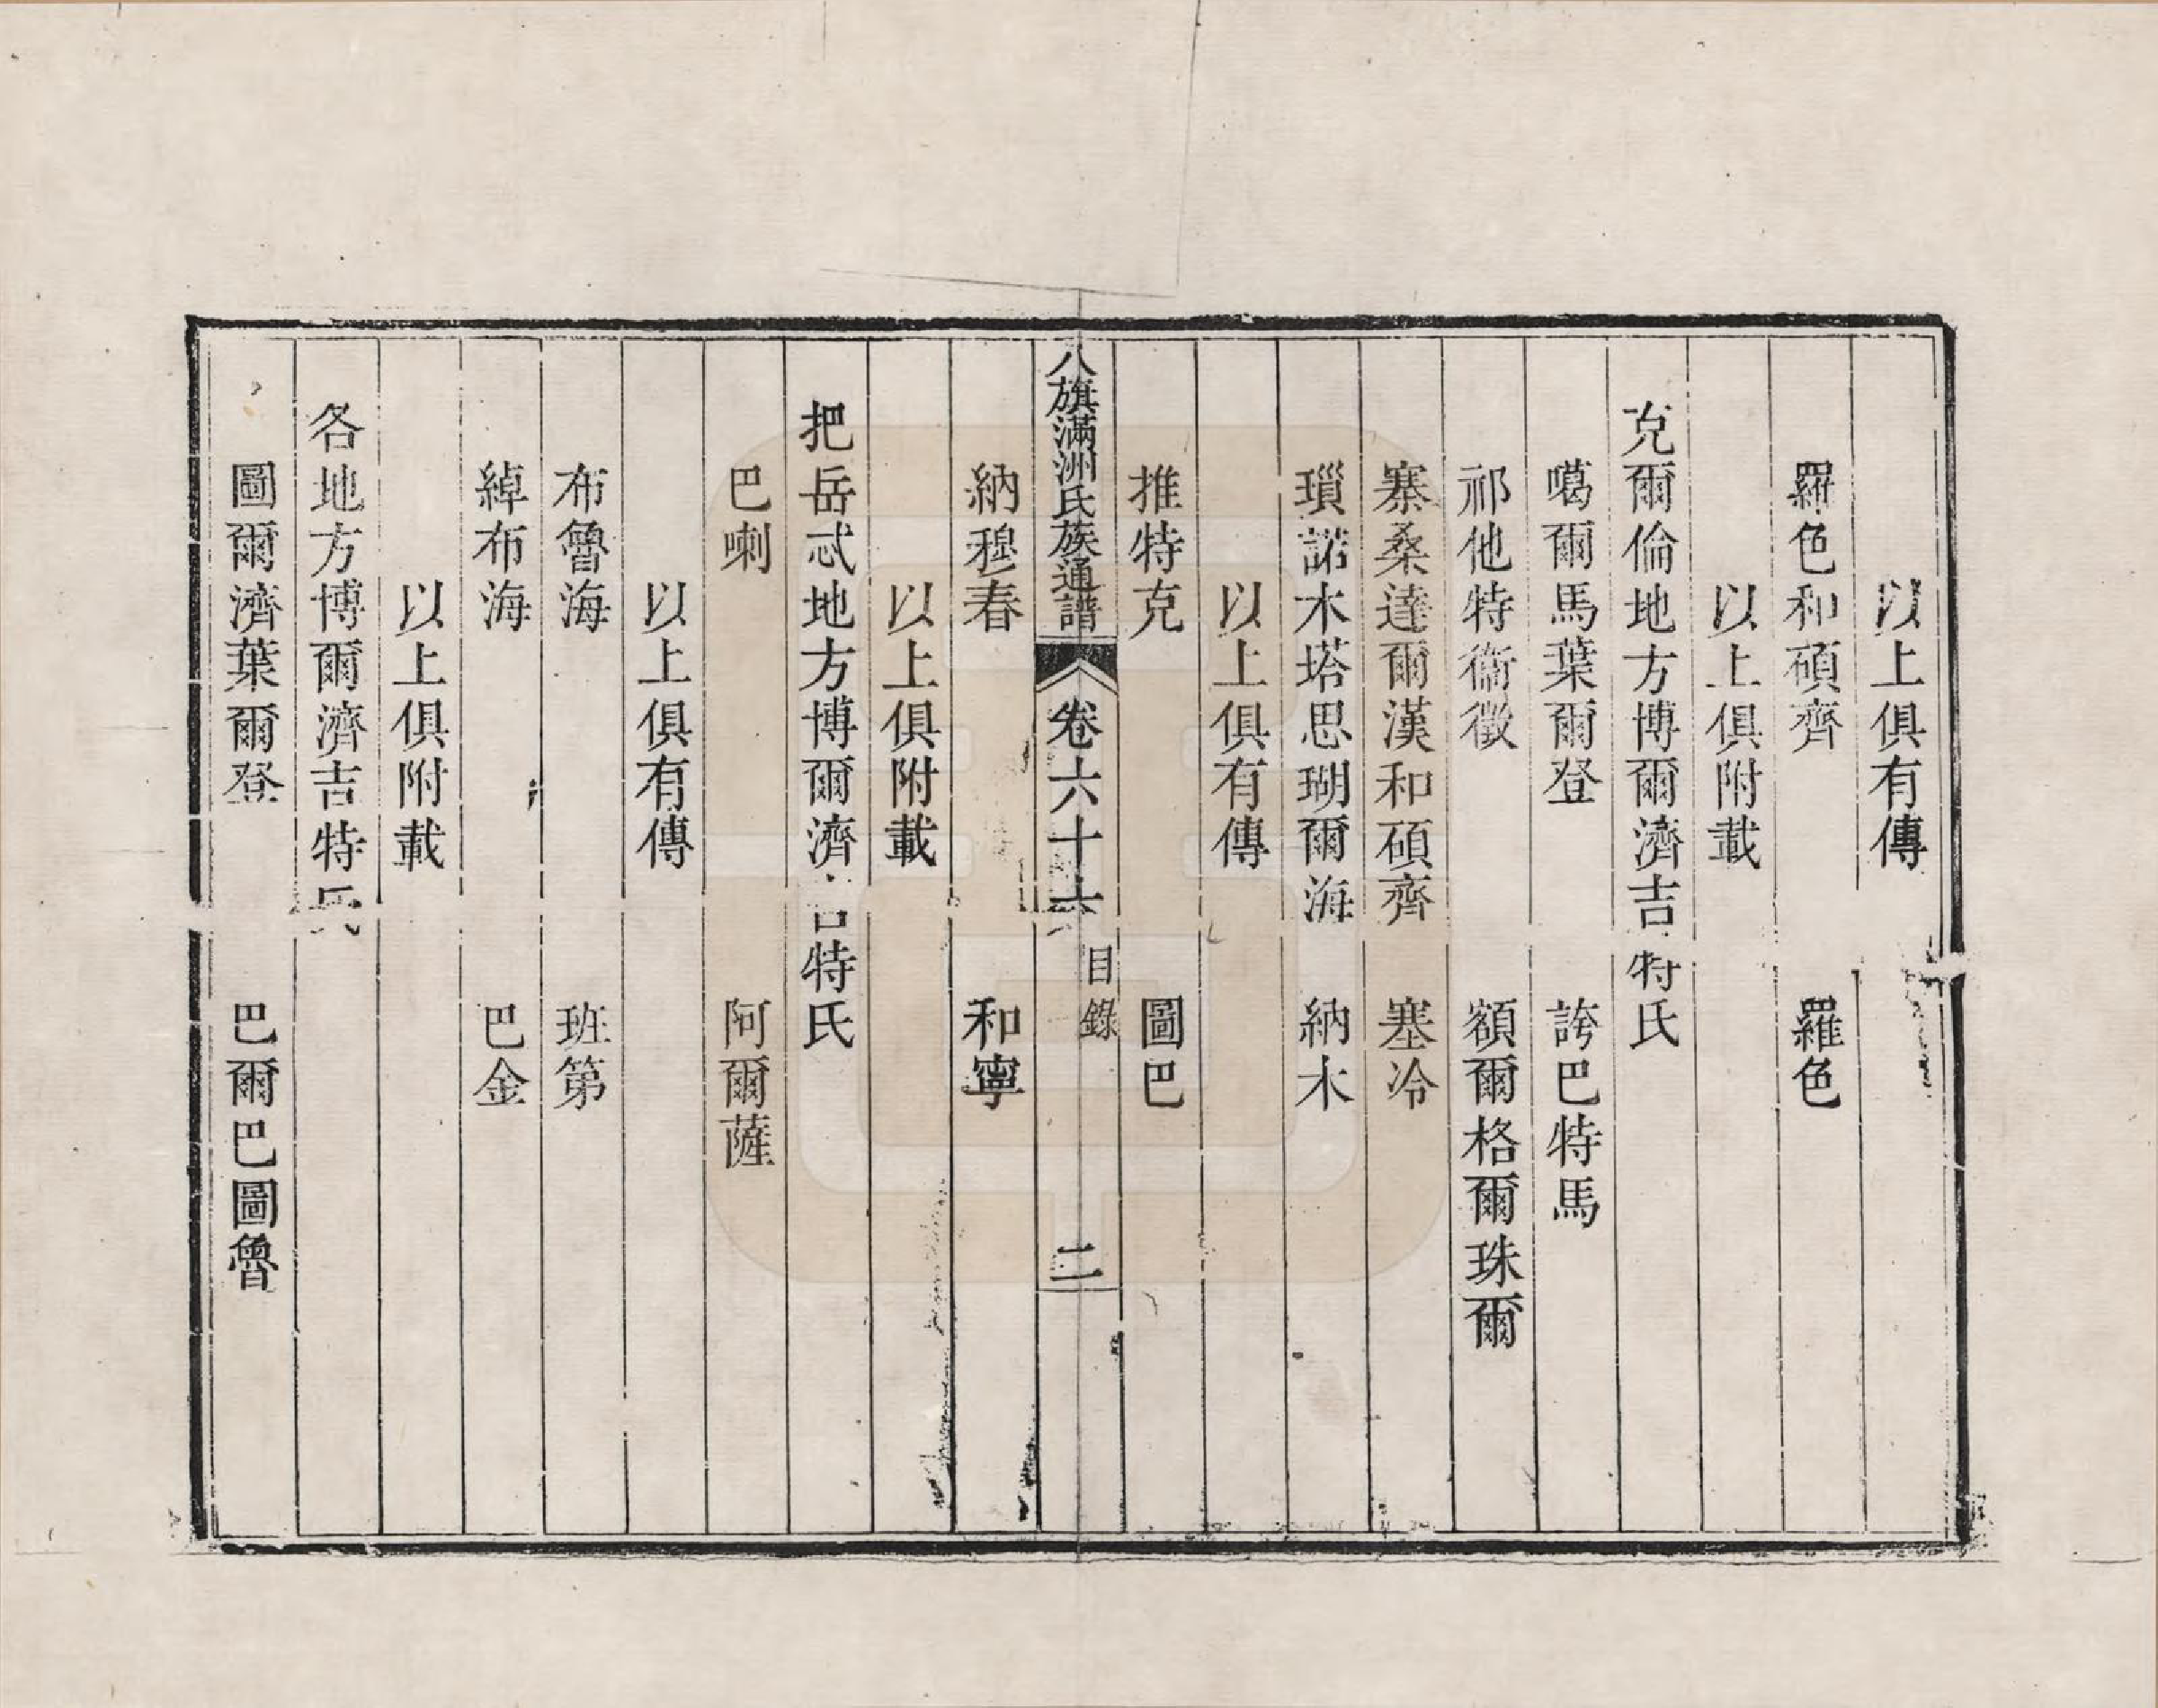 以上俱有傳
羅色和碩齊　羅色
以上俱附載
克爾倫地方博爾濟吉特氏
噶爾馬葉爾登　誇巴特馬
祁他特衞徵　額爾格爾珠爾
寨桑達爾漢和碩齊　塞冷
瑣諾木塔思瑚爾海　納木
以上俱有傳
推特克　圖巴
八旗滿洲氏族通譜　卷六十六　目錄　二
納穆春　和寧
以上俱附載
把岳忒地方博爾濟吉特氏
巴喇　阿爾薩
以上俱有傳
布魯海　班第
綽布海　巴金
以上俱附載
各地方博爾濟吉特氏
圖爾濟葉爾登　巴爾巴圖魯